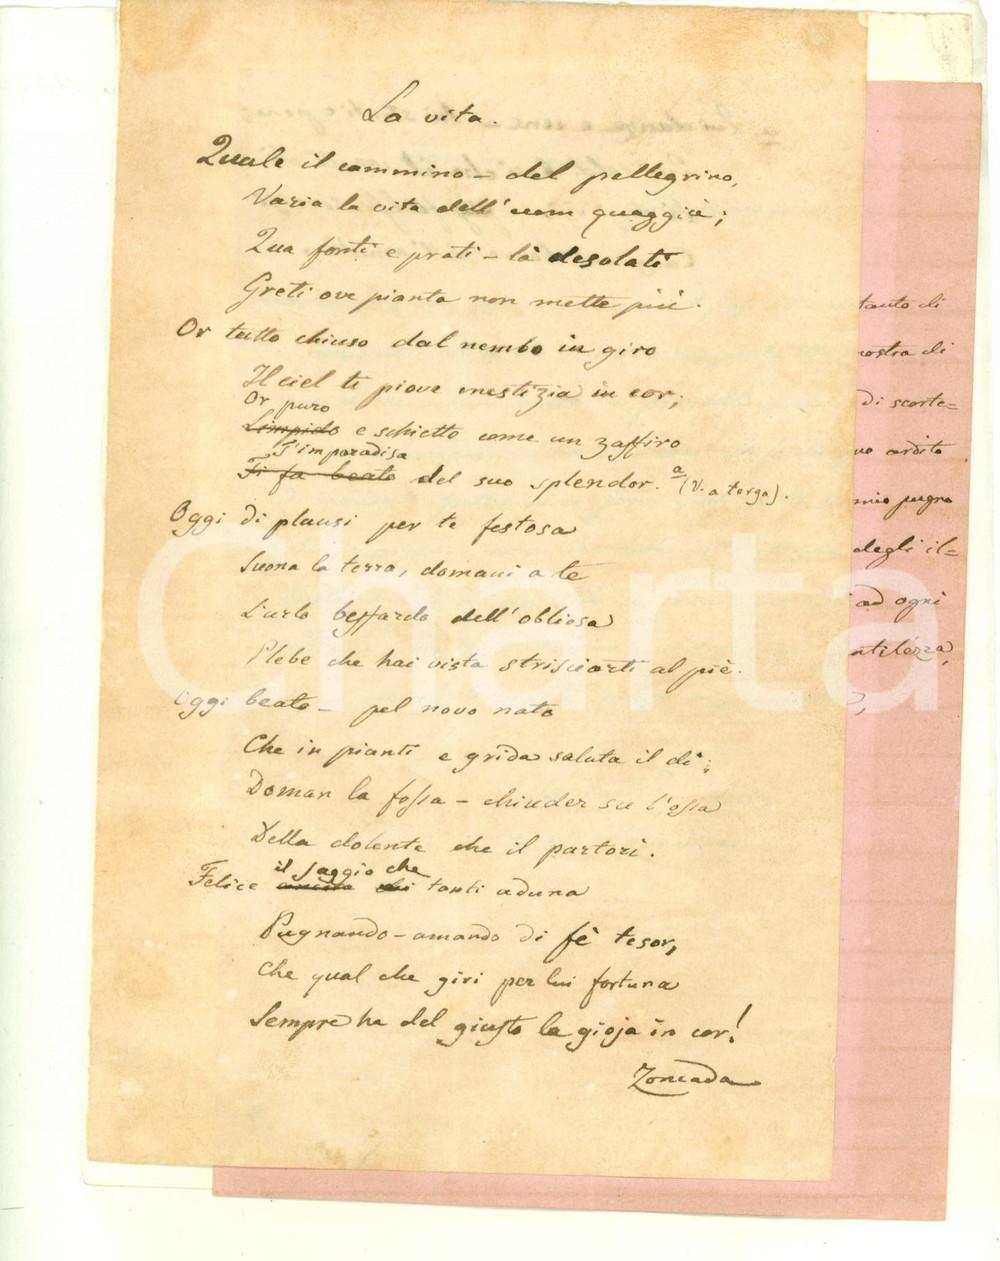 La vita.
Quale il cammino – del pellegrino,
Varia la vita dell'uom quaggiù;
Qua fonti e prati – là desolati
Greti ove pianta non mette più.
Or tutto chiuso dal nembo in giro
Il ciel ti piove mestizia in cor;
Or puro
Limpido e schietto come un zaffiro
T'imparadisa
Ti fa beato del suo splendor. a (V. a tergo).
Oggi di plausi per te festosa
Suona la terra, domani a te
L'urlo beffardo dell'obliosa
Plebe che hai vista strisciarti al piè.
Oggi beato – pel novo nato
Che in pianti e grida saluta il dì;
Doman la fossa – chiuder su l'ossa
Della dolente che il partorì.
il saggio che
Felice tanti aduna
Pugnando – amando di fè tesor,
Che qual che giri per lui fortuna
Sempre ha del giusto la gioja in cor!
Zoncada
tanto di
nostra di
di scorte=
ardito
mio pugno
degli il=
ad ogni
ntilezza,
Charta